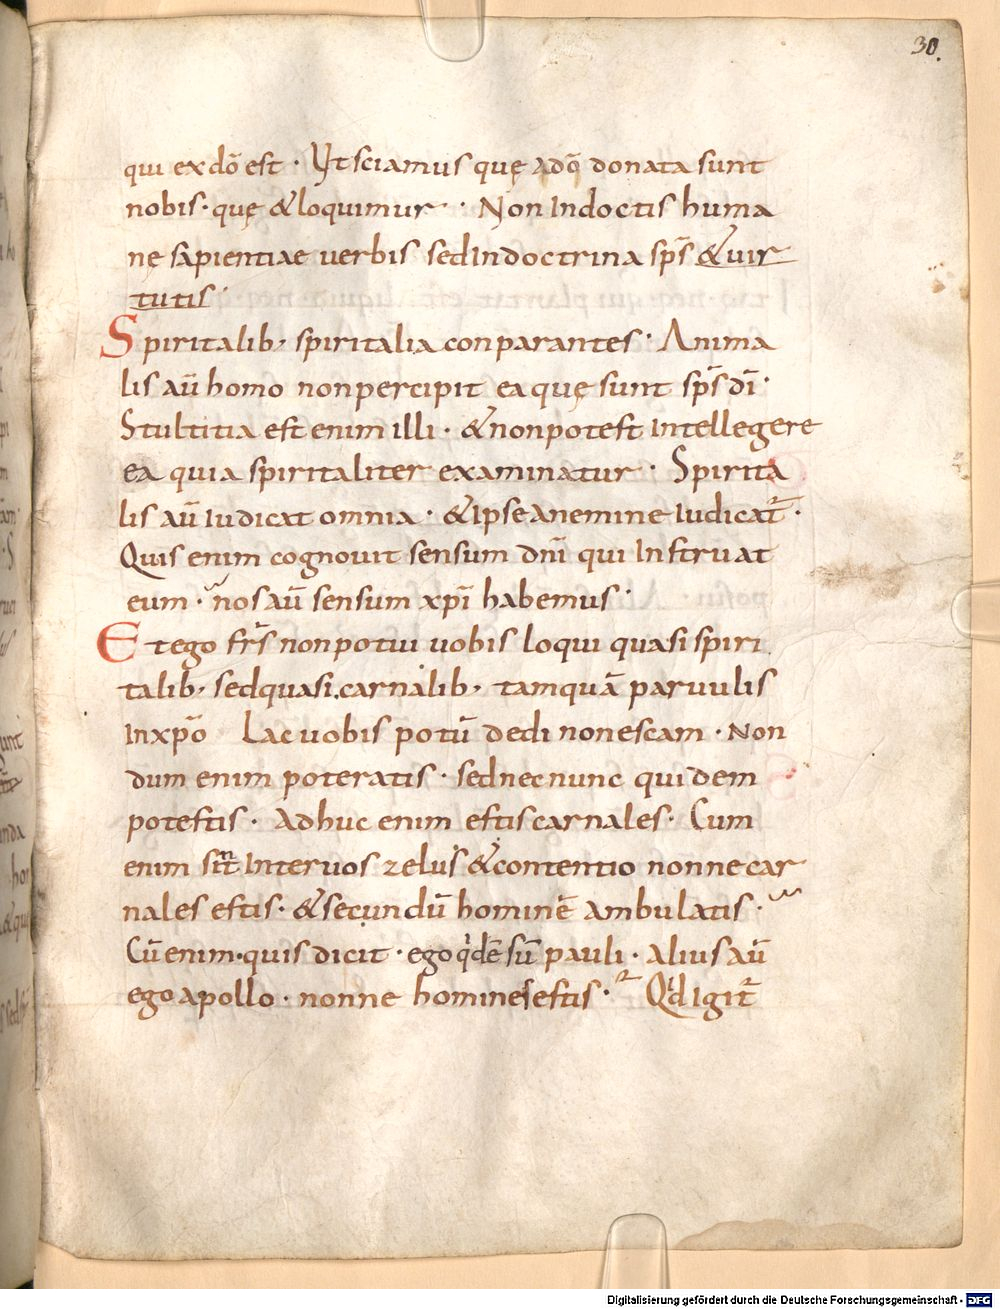 30.
qui ex dō est · Ut sciamus quę a dō donata sunt
nobis · quę & loquimur · Non In doctis huma
nę sapientiae uerbis sed In doctrina sp̄s & uir
tutis ·
Spiritalib; spiritalia conparantes · Anima
lis aū homo non percipit ea quę sunt sp̄s dī ·
Stultitia est enim illi · & non potest Intellegere
ea quia spiritaliter examinatur · Spirita
lis aū Iudicat omnia · & Ipse a nemine Iudicat̄ ·
Quis enim cognouit sensum dn̄i qui Instruat
eum · nos aū sensum xp̄i habemus ·
Et ego fr̄s non potui uobis loqui quasi spiri
talib; sed quasi carnalib; tamquā paruulis
In xp̄o Lac uobis potū dedi non escam · Non
dum enim poteratis · sed nec nunc quidem
potestis · Adhuc enim estis carnales · Cum
enim sit Inter uos zelus & contentio nonne car
nales estis · & secundū hominē ambulatis ·
Cū enim quis dicit · ego qidē sū pauli · Alius aū
ego apollo · nonne homines estis · Qid Igit̄
Digitalisierung gefördert durch die Deutsche Forschungsgemeinschaft - DFG